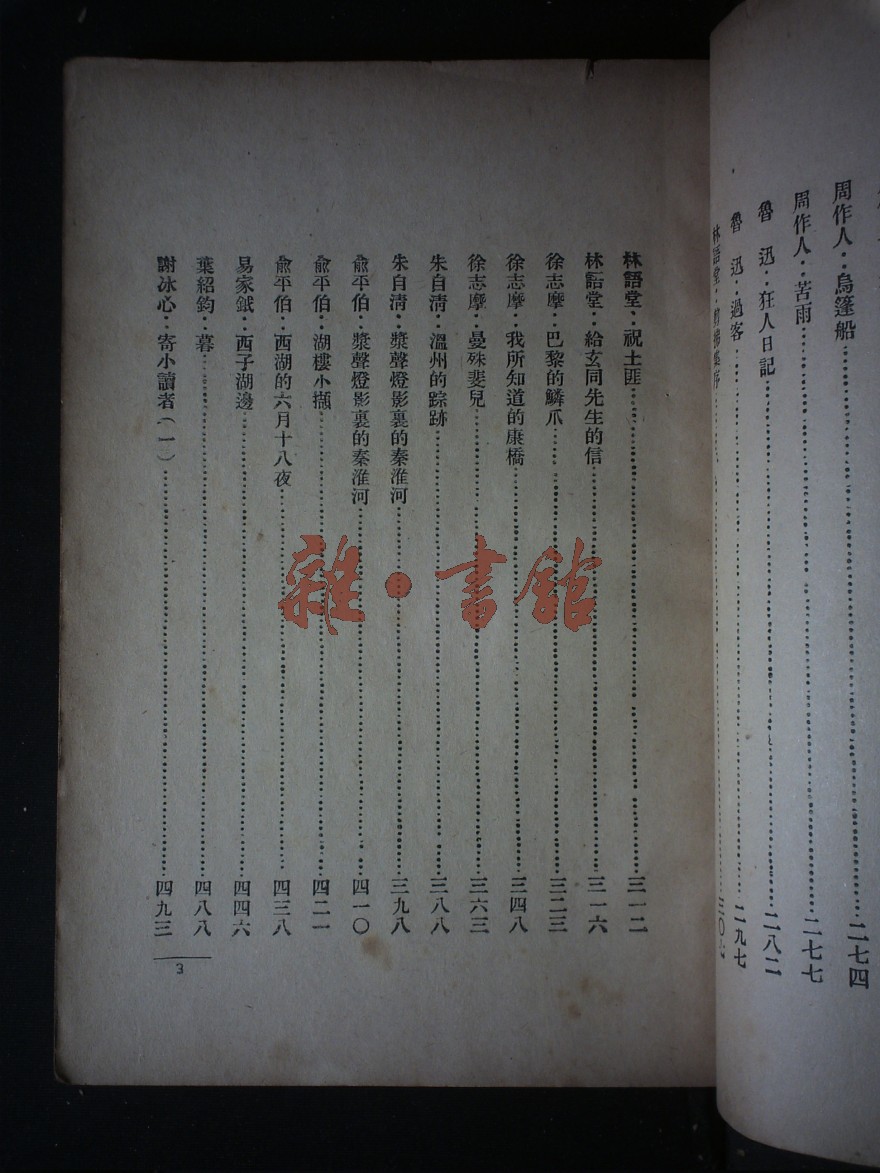 周作人：烏篷船……二七四
周作人：苦雨……二七七
魯　迅：狂人日記……二八二
魯　迅：過客……二九七
林語堂：翦拂集序……三〇七
林語堂：祝土匪……三一二
林語堂：給玄同先生的信……三一六
徐志摩：巴黎的鱗爪……三二三
徐志摩：我所知道的康橋……三四八
徐志摩：曼殊斐兒……三六三
朱自清：溫州的踪跡……三八八
朱自清：槳聲燈影裏的秦淮河……三九八
兪平伯：槳聲燈影裏的秦淮河……四一〇
兪平伯：湖樓小擷……四二一
兪平伯：西湖的六月十八夜……四三八
易家鉞：西子湖邊……四四六
葉紹鈞：暮……四八八
謝冰心：寄小讀者（一）……四九三
3
雜·書館